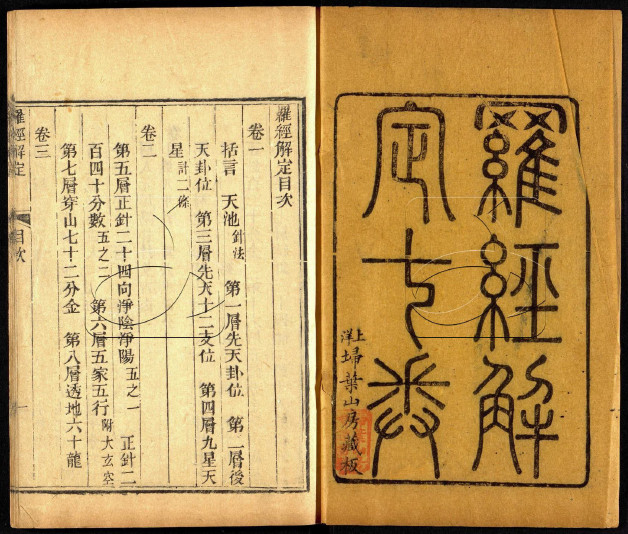 羅經解
定七卷
上洋埽葉山房藏板
羅經解定目次
卷一
括言　天池針法　第一層先天卦位　第二層後
天卦位　第三層先天十二支位　第四層九星天
星計二條
卷二
第五層正針二十四向淨陰淨陽五之一　正針二
百四十分數五之二　第六層五家五行附大玄空
第七層穿山七十二分金　第八層透地六十龍
卷三
羅經解定　目次